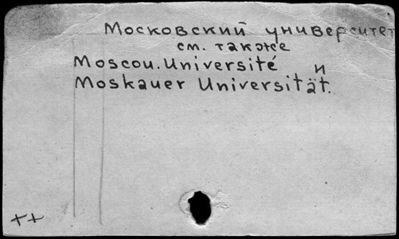 Московский университет
см. также
Moscou. Université и
Moskauer Universität.
++